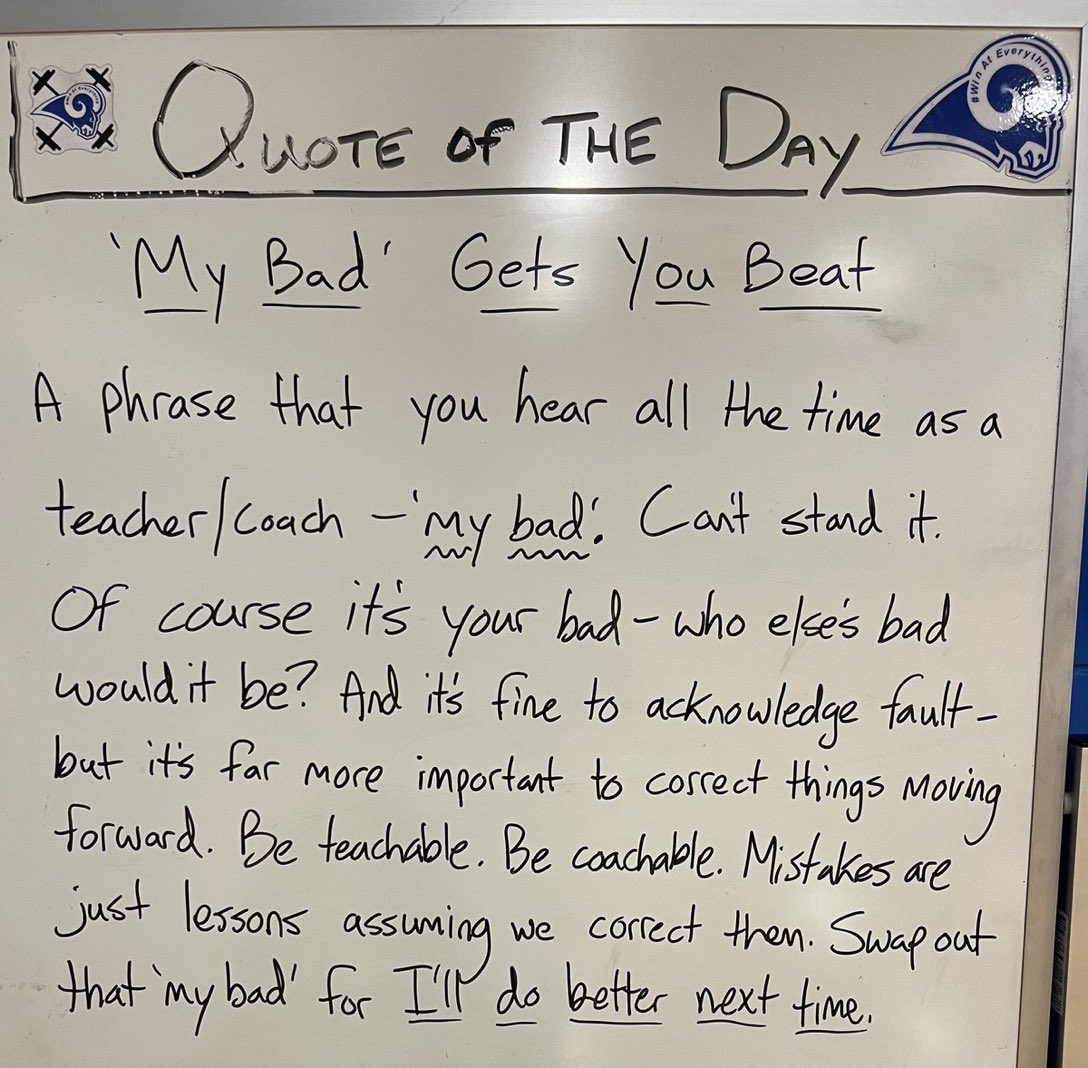 QUOTE OF THE DAY
#Win At Everything
'My Bad' Gets You Beat
A phrase that you hear all the time as a
teacher/coach - 'my bad'. Can't stand it.
Of course it's your bad - who else's bad
would it be? And it's fine to acknowledge fault -
but it's far more important to correct things moving
forward. Be teachable. Be coachable. Mistakes are
just lessons assuming we correct them. Swap out
that 'my bad' for I'll do better next time.